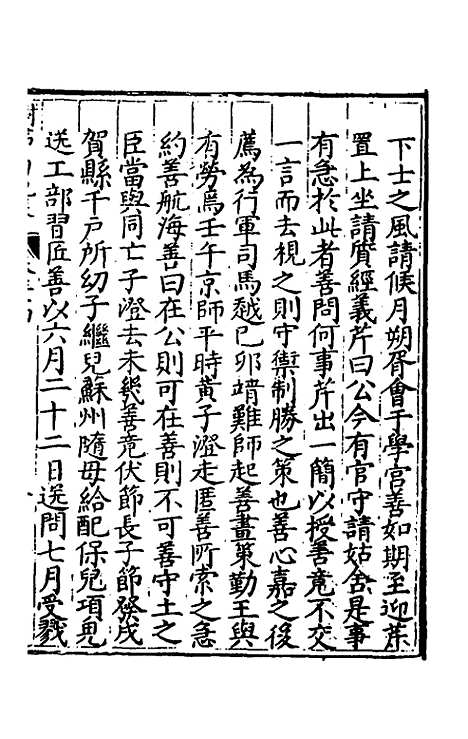 下士之風請候月朔胥會于學宮善如期至迎芹
置上坐請質經義芹曰公今有官守請姑舍是事
有急於此者善問何事芹出一簡以授善竟不交
一言而去視之則守禦制勝之策也善心嘉之後
薦為行軍司馬越己卯靖難師起善畫策勤王與
有勞焉壬午京師平時黃子澄走匿善所索之急
約善航海善曰在公則可在善則不可善守土之
臣當與同亡子澄去未幾善竟伏節長子節發戍
賀縣千戶所幼子繼兒蘇州隨母給配保兒項兒
送工部習匠善以六月二十二日送問七月受戮